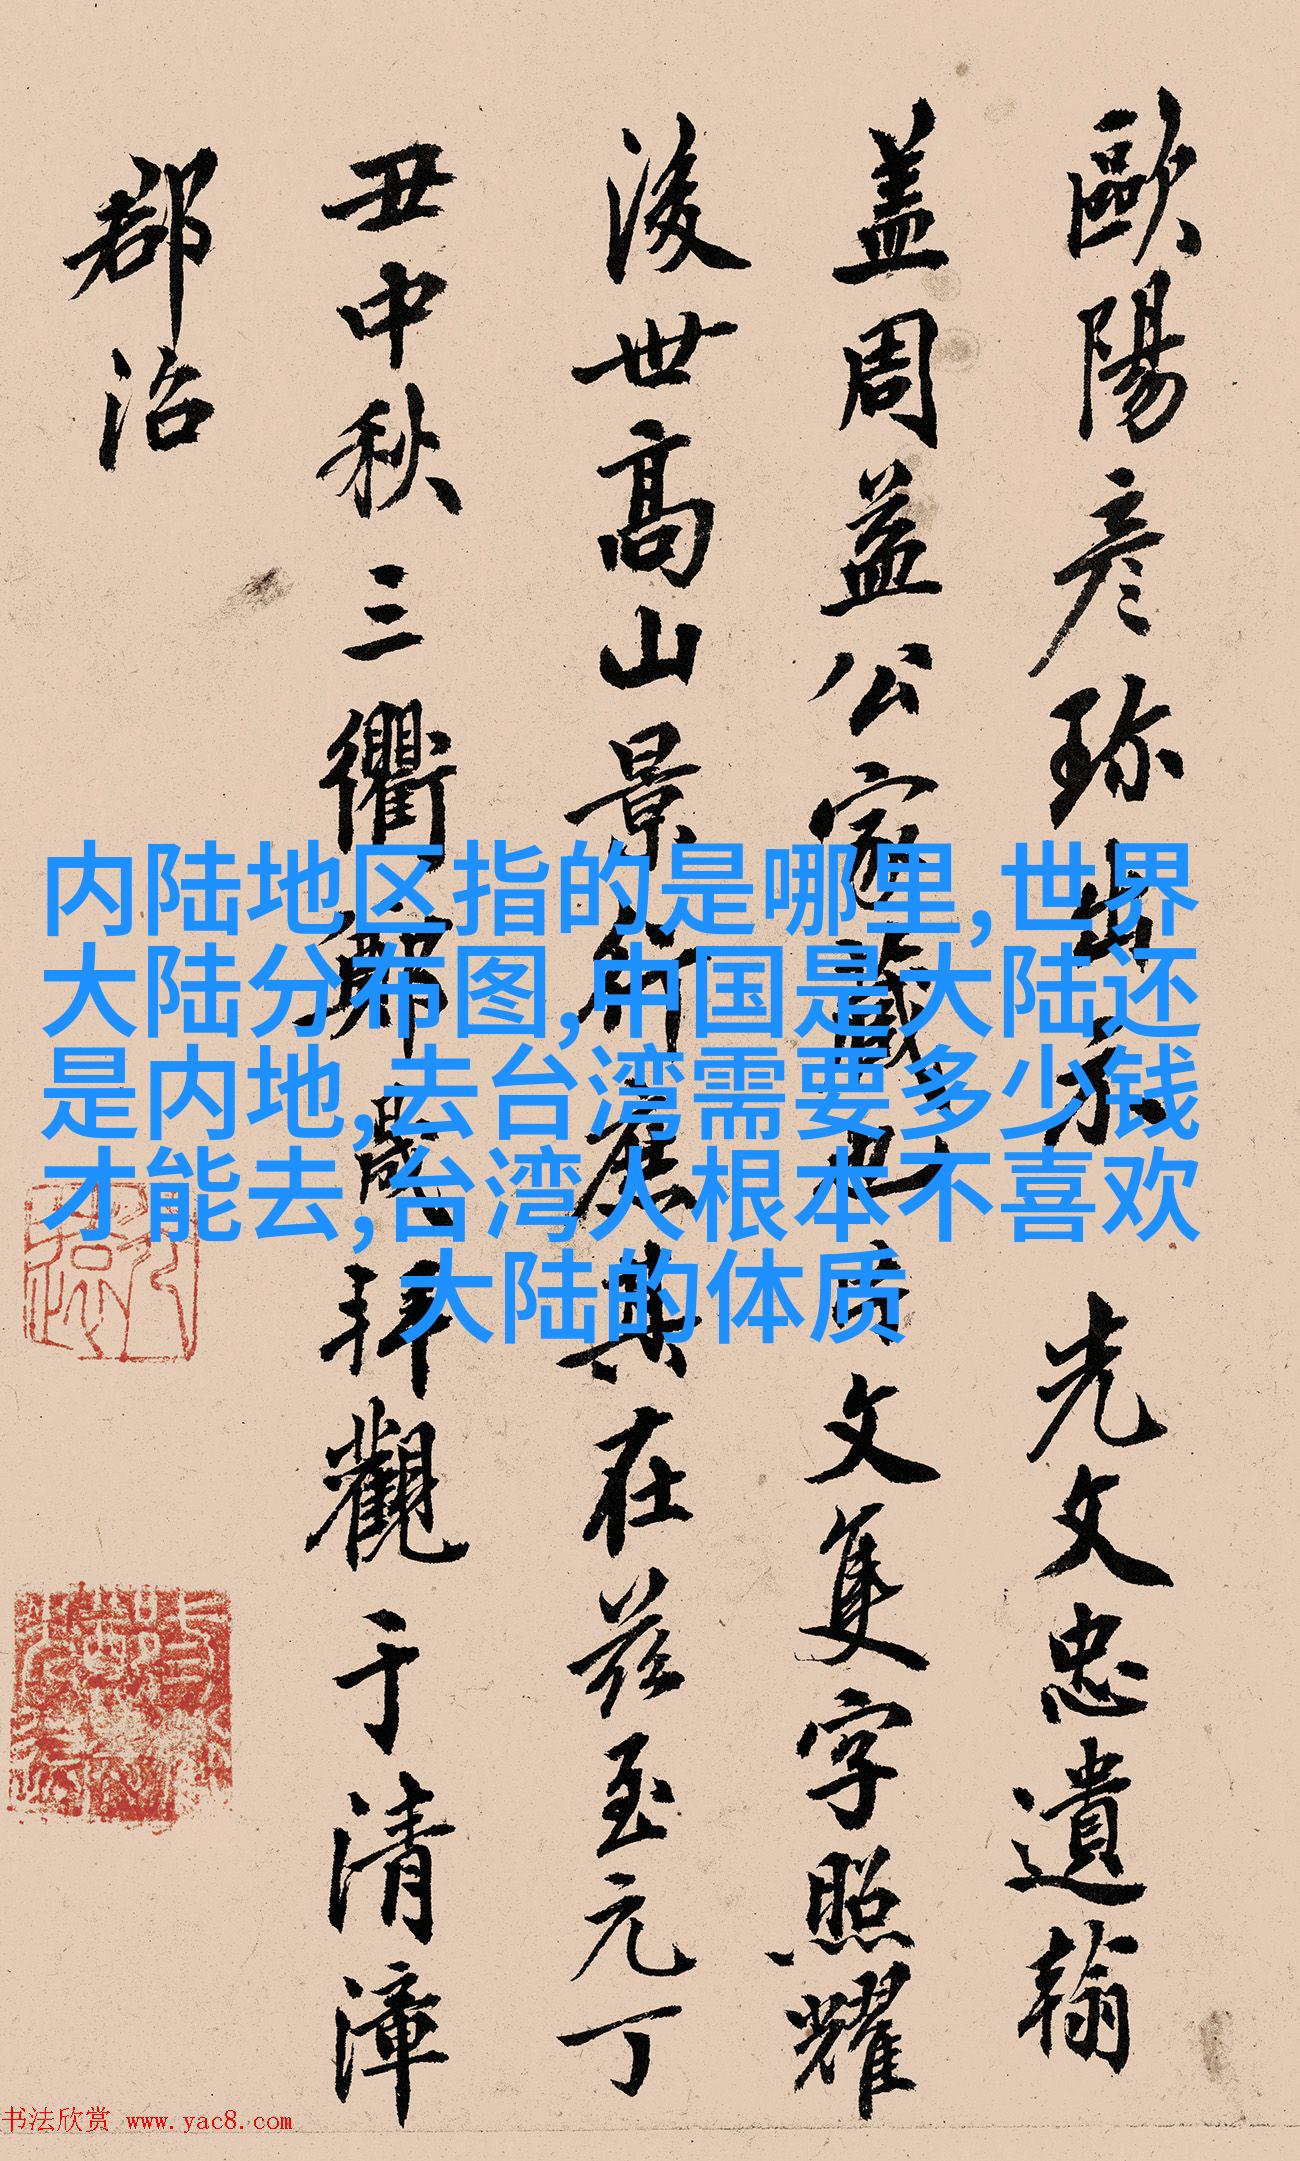 歐陽彦珎出示 光文忠遺翰
盖周益公家藏也 文隻字照耀
後世高山景行 其在兹至元丁
丑中秋三衢鄭 拜觀于清漳
郡治
内陆地区指的是哪里,世界
大陆分布图,中国是大陆还
是内地,去台湾需要多少钱
才能去,台湾人根本不喜欢
大陆的体质
书法欣赏 www.yac8.com